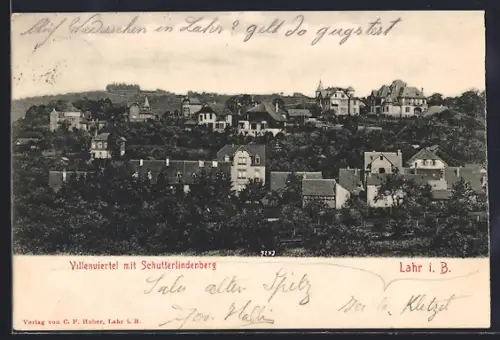 Auf Wiedersehen in Lahr? gelt do gugstert
Villenviertel mit Schutterlindenberg
Lahr i. B.
Salü alter Spitz
Verlag von C. F. Huber, Lahr i. B.